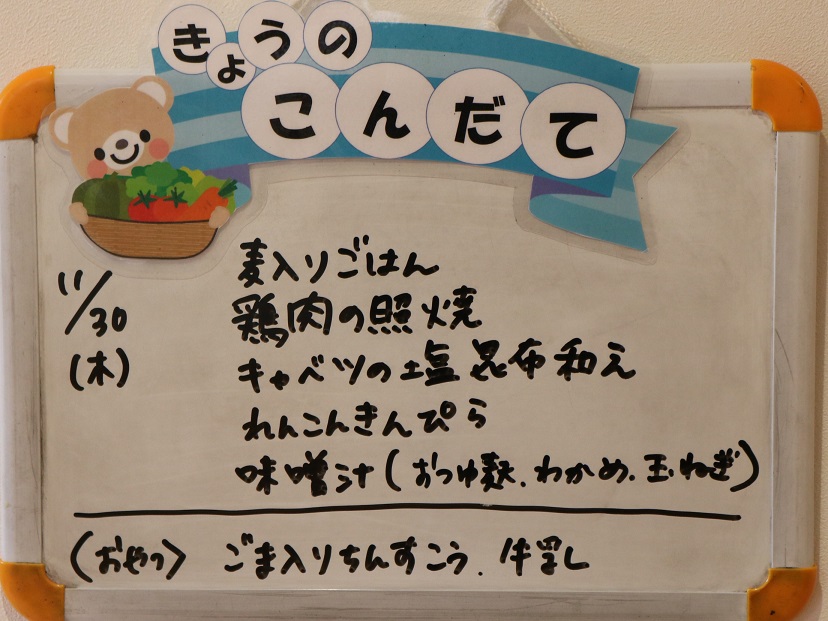 きょうの
こんだて
11/30
(木)
麦入りごはん
鶏肉の照焼
キャベツの塩昆布和え
れんこんきんぴら
味噌汁(おつゆ麸.わかめ.玉ねぎ)
(おやつ) ごま入りちんすこう.牛乳